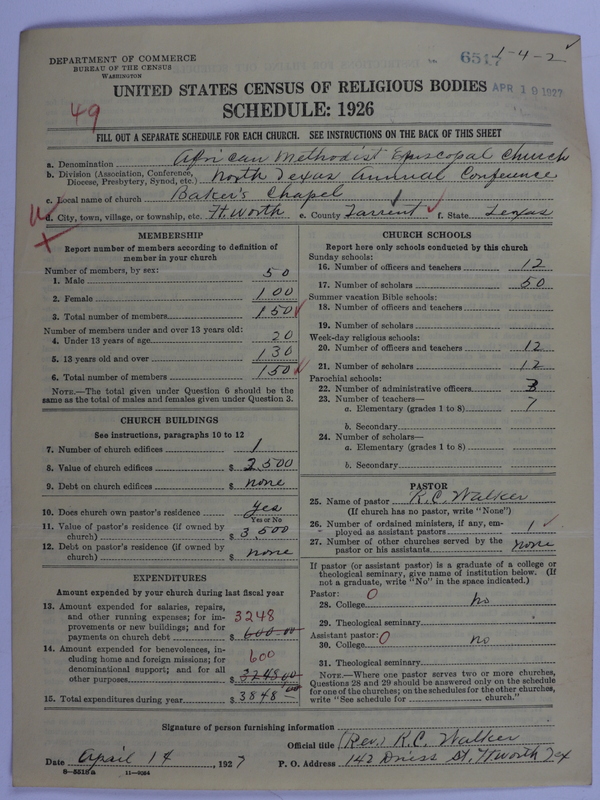 DEPARTMENT OF COMMERCE
BUREAU OF THE CENSUS
WASHINGTON
6517 1-4-2
APR 19 1927
UNITED STATES CENSUS OF RELIGIOUS BODIES
SCHEDULE: 1926
49
FILL OUT A SEPARATE SCHEDULE FOR EACH CHURCH. SEE INSTRUCTIONS ON THE BACK OF THIS SHEET
a. Denomination African Methodist Episcopal Church
b. Division (Association, Conference, Diocese, Presbytery, Synod, etc.) North Texas Annual Conference
c. Local name of church Baker's Chapel
d. City, town, village, or township, etc. Ft. Worth e. County Tarrent f. State Texas
MEMBERSHIP
Report number of members according to definition of
member in your church
Number of members, by sex:
1. Male 50
2. Female 100
3. Total number of members 150
Number of members under and over 13 years old:
4. Under 13 years of age 20
5. 13 years old and over 130
6. Total number of members 150
NOTE.—The total given under Question 6 should be the
same as the total of males and females given under Question 3.
CHURCH BUILDINGS
See instructions, paragraphs 10 to 12
7. Number of church edifices 1
8. Value of church edifices $ 2500
9. Debt on church edifices $ none
10. Does church own pastor's residence yes
Yes or No
11. Value of pastor's residence (if owned by
church) $ 3500
12. Debt on pastor's residence (if owned by
church) $ none
EXPENDITURES
Amount expended by your church during last fiscal year
13. Amount expended for salaries, repairs,
and other running expenses; for im-
provements or new buildings; and for 3248
payments on church debt $ 600.00
14. Amount expended for benevolences, in-
cluding home and foreign missions; for 600
denominational support; and for all
other purposes $ 3248.00
15. Total expenditures during year $ 3848.00
CHURCH SCHOOLS
Report here only schools conducted by this church
Sunday schools:
16. Number of officers and teachers 12
17. Number of scholars 50
Summer vacation Bible schools:
18. Number of officers and teachers
19. Number of scholars
Week-day religious schools:
20. Number of officers and teachers 12
21. Number of scholars 12
Parochial schools:
22. Number of administrative officers 3
23. Number of teachers—
a. Elementary (grades 1 to 8) 7
b. Secondary
24. Number of scholars—
a. Elementary (grades 1 to 8)
b. Secondary
PASTOR
25. Name of pastor R.C. Walker
(If church has no pastor, write "None")
26. Number of ordained ministers, if any, em-
ployed as assistant pastors 1
27. Number of other churches served by the
pastor or his assistants none
If pastor (or assistant pastor) is a graduate of a college or
theological seminary, give name of institution below. (If
not a graduate, write "No" in the space indicated.)
Pastor: 0
28. College no
29. Theological seminary
Assistant pastor: 0
30. College no
31. Theological seminary
NOTE.—Where one pastor serves two or more churches,
Questions 28 and 29 should be answered only on the schedule
for one of the churches; on the schedules for the other churches,
write "See schedule for church."
Signature of person furnishing information
Official title (Rev.) R.C. Walker
Date April 14, 1927 P. O. Address 142 St. Ft Worth Tex
8-5518 a 11-9264